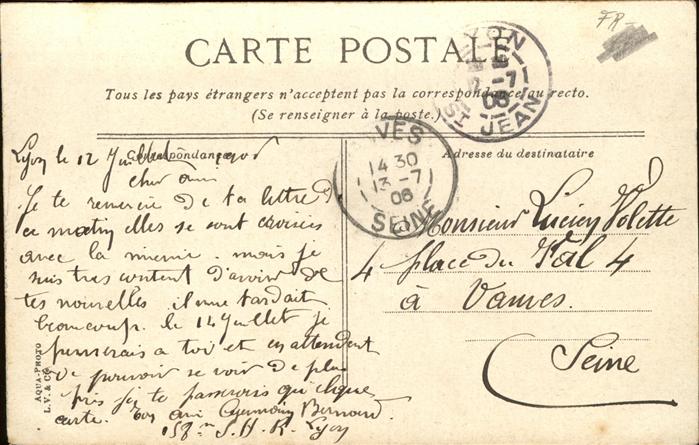 FR-
CARTE POSTALE
Tous les pays étrangers n'acceptent pas la correspondance au recto.
(Se renseigner à la poste.)
LYON
-7
06
ST JEAN
VES
14 30
13 -7
06
SEINE
Correspondance
Adresse du destinataire
Lyon le 12 Juillet
cher ami
Je te remercie de ta lettre
ce matin elles se sont croisées
avec la mienne. mais je
suis tres content d'avoir de
tes nouvelles il me tardait
beaucoup. le 14 Juillet je
penserais a toi et en attendant
de pouvoir se voir de plus
pris je te passerais quelque
carte. ton ami Germain Bernard
158 S. H. R. Lyon
Monsieur Lucien Volette
4 place du Val 4
à Vanves.
Seine
AQUA-PHOTO
L.V. & Cie